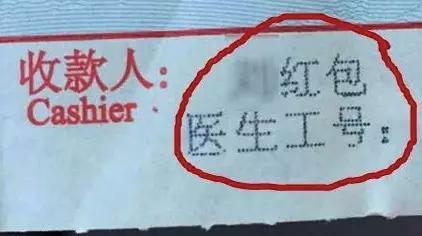 收款人：
Cashier
红包
医生工号：